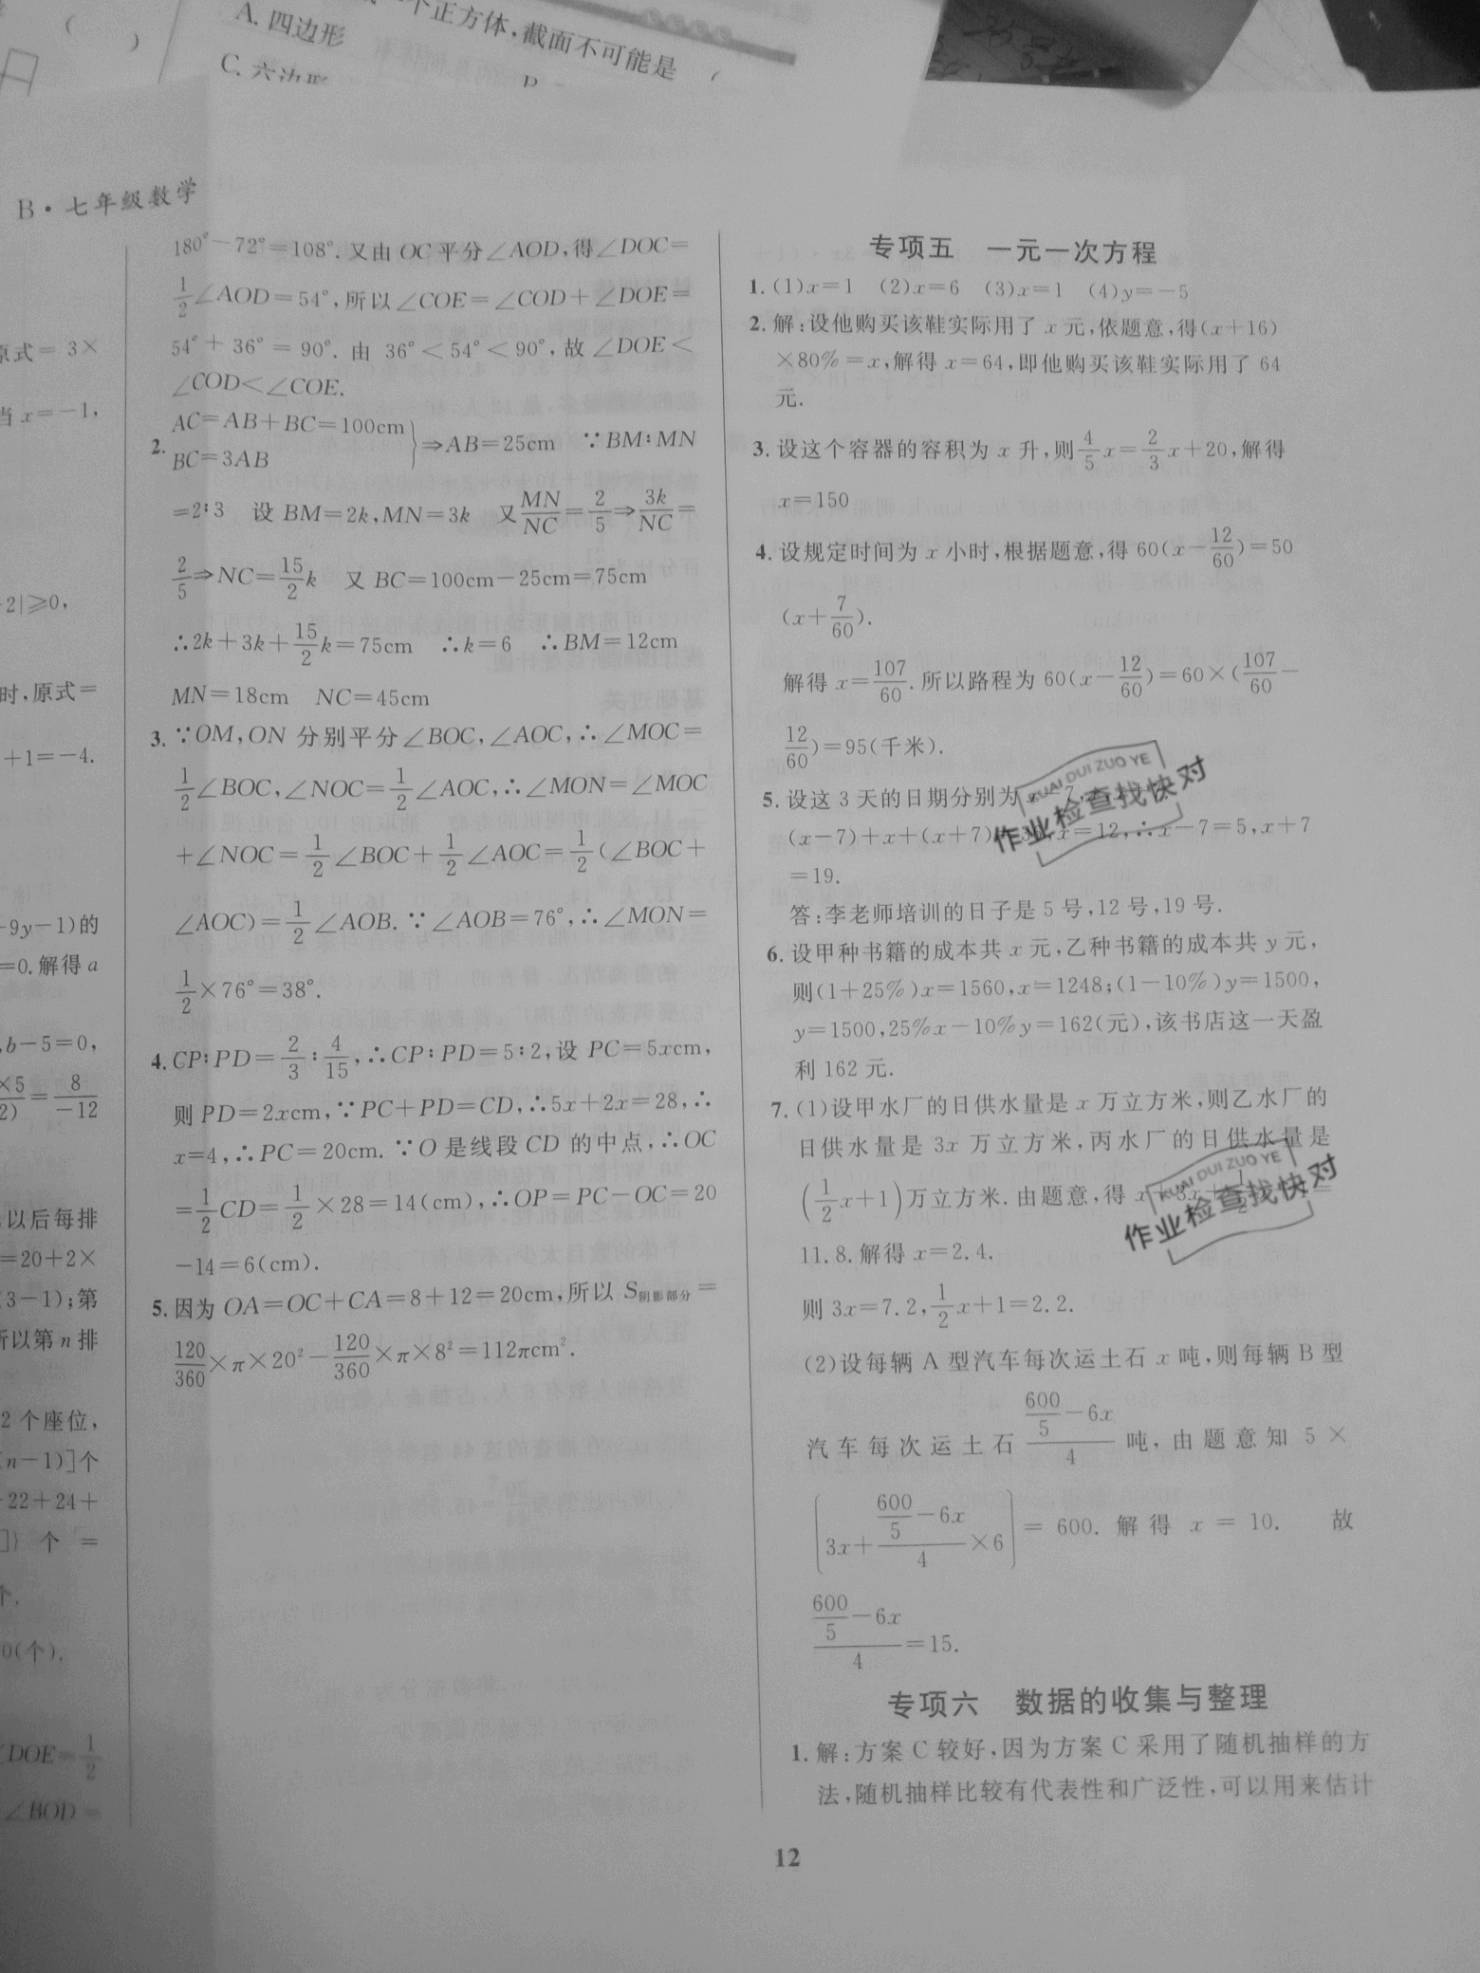 A. 四边形
个正方体,截面不可能是 (
C. 六边形
B·七年级数学
原式= 3×
当 x=-1,
2|≥0,
时,原式=
+1=-4.
-9y-1)的
=0.解得 a
b-5=0,
×5/2)=8/-12
以后每排
=20+2×
(3-1);第
所以第 n 排
2 个座位,
n-1)]个
22+24+
]} 个 =
个.
0(个).
∠DOE=1/2
∠BOD=
180°-72°=108°.又由 OC 平分∠AOD,得∠DOC=
1/2∠AOD=54°,所以∠COE=∠COD+∠DOE=
54°+36°=90°. 由 36°<54°<90°,故∠DOE<
∠COD<∠COE.
2. AC=AB+BC=100cm
BC=3AB }⇒AB=25cm ∵BM∶MN
=2∶3 设 BM=2k,MN=3k 又MN/NC=2/5⇒3k/NC=
2/5⇒NC=15/2k 又 BC=100cm-25cm=75cm
∴2k+3k+15/2k=75cm ∴k=6 ∴BM=12cm
MN=18cm NC=45cm
3. ∵OM,ON 分别平分∠BOC,∠AOC,∴∠MOC=
1/2∠BOC,∠NOC=1/2∠AOC,∴∠MON=∠MOC
+∠NOC=1/2∠BOC+1/2∠AOC=1/2(∠BOC+
∠AOC)=1/2∠AOB.∵∠AOB=76°,∴∠MON=
1/2×76°=38°.
4. CP∶PD=2/3∶4/15,∴CP∶PD=5∶2,设 PC=5xcm,
则 PD=2xcm,∵PC+PD=CD,∴5x+2x=28,∴
x=4,∴PC=20cm.∵O 是线段 CD 的中点,∴OC
=1/2CD=1/2×28=14(cm),∴OP=PC-OC=20
-14=6(cm).
5. 因为 OA=OC+CA=8+12=20cm,所以 S阴影部分=
120/360×π×20²-120/360×π×8²=112πcm².
专项五 一元一次方程
1. (1)x=1 (2)x=6 (3)x=1 (4)y=-5
2. 解:设他购买该鞋实际用了 x 元,依题意,得(x+16)
×80%=x,解得 x=64,即他购买该鞋实际用了 64
元.
3. 设这个容器的容积为 x 升,则4/5x=2/3x+20,解得
x=150
4. 设规定时间为 x 小时,根据题意,得 60(x-12/60)=50
(x+7/60).
解得 x=107/60.所以路程为 60(x-12/60)=60×(107/60-
12/60)=95(千米).
5. 设这 3 天的日期分别为
(x-7)+x+(x+7) x=12,∴x-7=5,x+7
=19.
KUAI DUI ZUO YE
作业检查找快对
答:李老师培训的日子是 5 号,12 号,19 号.
6. 设甲种书籍的成本共 x 元,乙种书籍的成本共 y 元,
则(1+25%)x=1560,x=1248;(1-10%)y=1500,
y=1500,25%x-10%y=162(元),该书店这一天盈
利 162 元.
7. (1)设甲水厂的日供水量是 x 万立方米,则乙水厂的
日供水量是 3x 万立方米,丙水厂的日供水量是
(1/2x+1)万立方米.由题意,得 x+3x+
KUAI DUI ZUO YE
作业检查找快对
11.8.解得 x=2.4.
则 3x=7.2,1/2x+1=2.2.
(2)设每辆 A 型汽车每次运土石 x 吨,则每辆 B 型
汽车每次运土石 (600/5-6x)/4 吨,由题意知 5×
[3x+(600/5-6x)/4×6]=600.解得 x=10. 故
(600/5-6x)/4=15.
专项六 数据的收集与整理
1. 解:方案 C 较好,因为方案 C 采用了随机抽样的方
法,随机抽样比较有代表性和广泛性,可以用来估计
12